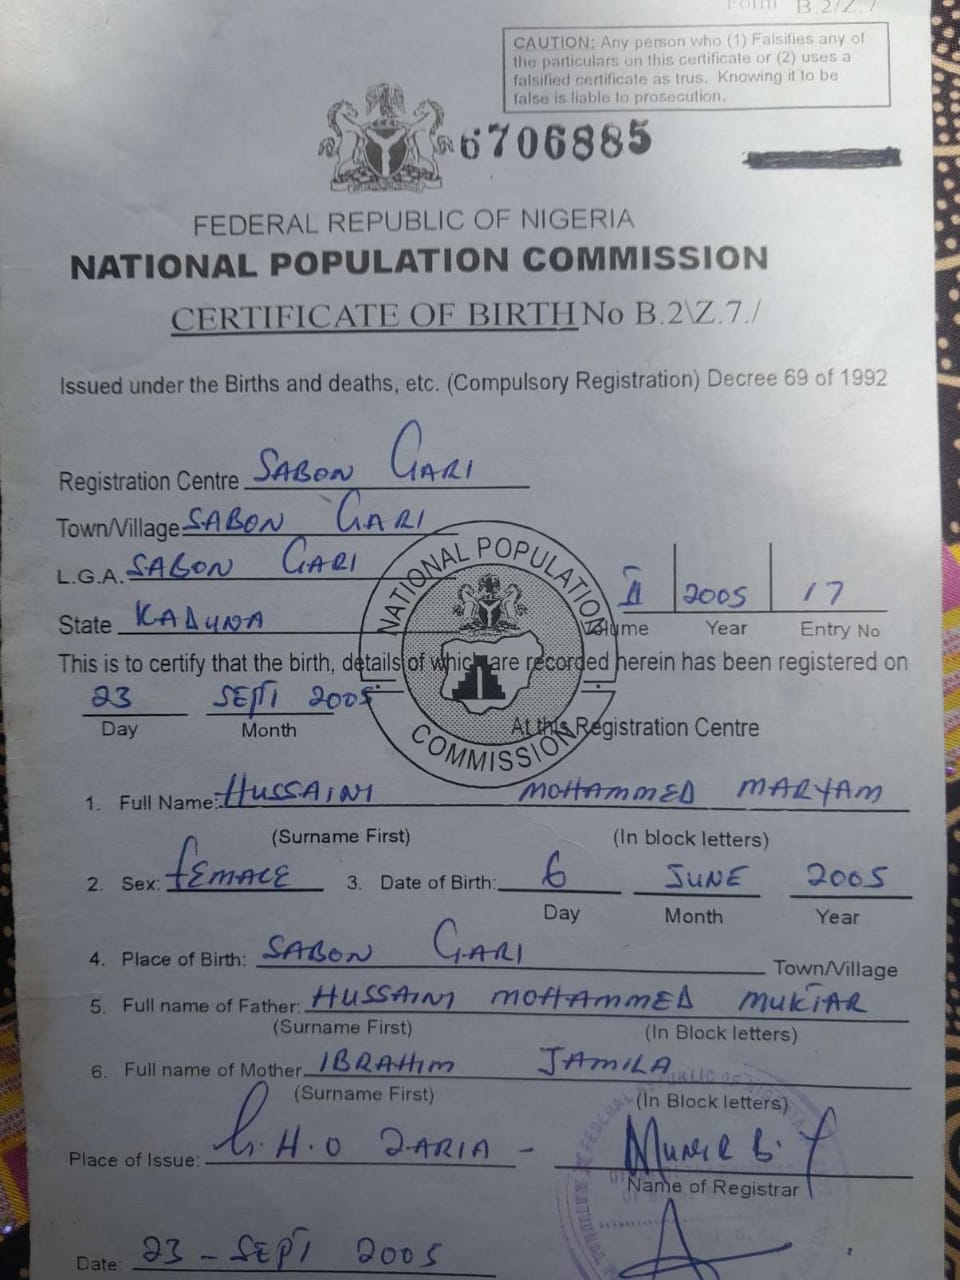 Form B.2/Z.7
CAUTION: Any person who (1) Falsifies any of
the particulars on this certificate or (2) uses a
falsified certificate as trus. Knowing it to be
false is liable to prosecution.
6706885
FEDERAL REPUBLIC OF NIGERIA
NATIONAL POPULATION COMMISSION
CERTIFICATE OF BIRTH No B.2\Z.7./
Issued under the Births and deaths, etc. (Compulsory Registration) Decree 69 of 1992
Registration Centre SABON GARI
Town/Village SABON GARI
L.G.A. SABON GARI
State KADUNA
II 2005 17
Volume Year Entry No
NATIONAL POPULATION COMMISSION
This is to certify that the birth, details of which are recorded herein has been registered on
23 SEPT 2005
Day Month At this Registration Centre
1. Full Name: HUSSAINI MOHAMMED MARYAM
(Surname First) (In block letters)
2. Sex: FEMALE 3. Date of Birth: 6 JUNE 2005
Day Month Year
4. Place of Birth: SABON GARI Town/Village
5. Full name of Father: HUSSAINI MOHAMMED MUKTAR
(Surname First) (In Block letters)
6. Full name of Mother IBRAHIM JAMILA
(Surname First) (In Block letters)
Place of Issue: G.H.O ZARIA - MUNIR B. Y
Name of Registrar
Date: 23 - SEPT 2005